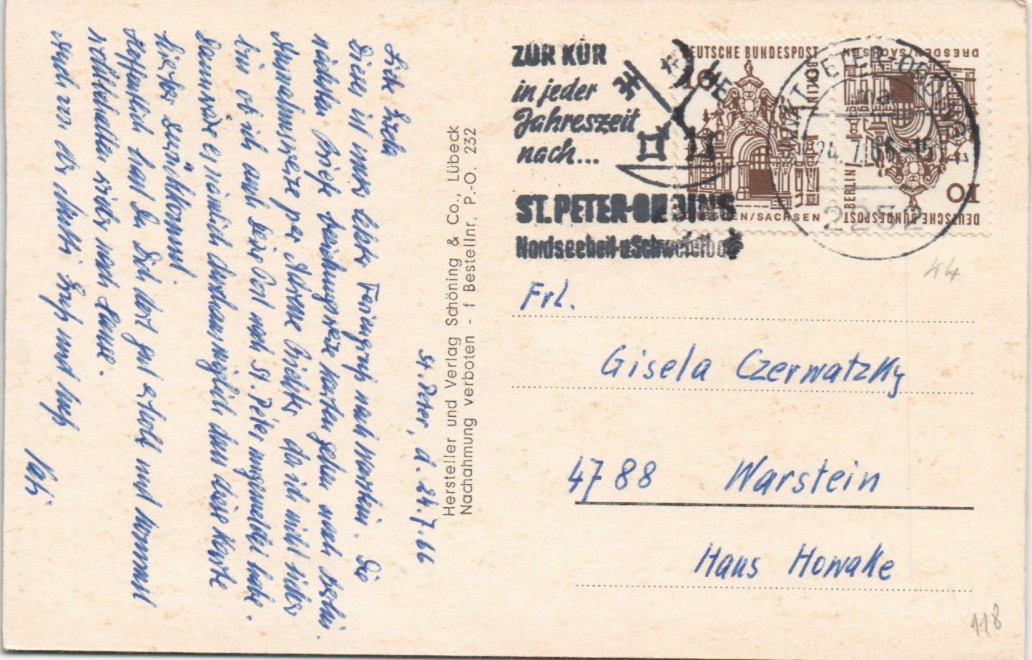 St. Peter, d. 24.7.66
Dies ist unser letzter
nächsten Briefe beziehungsweise Karten gehen nach Berlin.
Ausnahmsweise per Adresse da ich nicht sicher
bin ob ich auch die Post nach St. Peter angemeldet habe.
Dann wäre es nämlich durchaus möglich dass deine Karte
hierher zurückkommt
Hoffentlich hast Du Dich dort gut erholt und kommst
wohlbehalten wieder nach Hause.
Auch von der Mutti Gruß und
Hersteller und Verlag Schöning & Co., Lübeck
Nachahmung verboten - f Bestellnr. P.-O. 232
ZUR KUR
in jeder
Jahreszeit
nach...
ST. PETER-ORDING
Nordseeheil-u Schwefelbad
DEUTSCHE BUNDESPOST
10
DRESDEN/SACHSEN
DEUTSCHE BUNDESPOST
BERLIN
10
DRESDEN/SACHSEN
24.7.66-15
2252
Frl.
Gisela Czerwatzky
4788 Warstein
Haus Howake
44
118